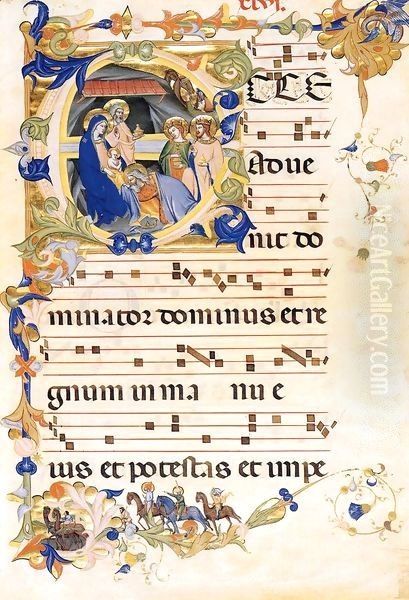 ECCE
Adue
nit do
minator dominus et re
gnum in ma nu e
ius et potestas et impe
NiceArtGallery.com